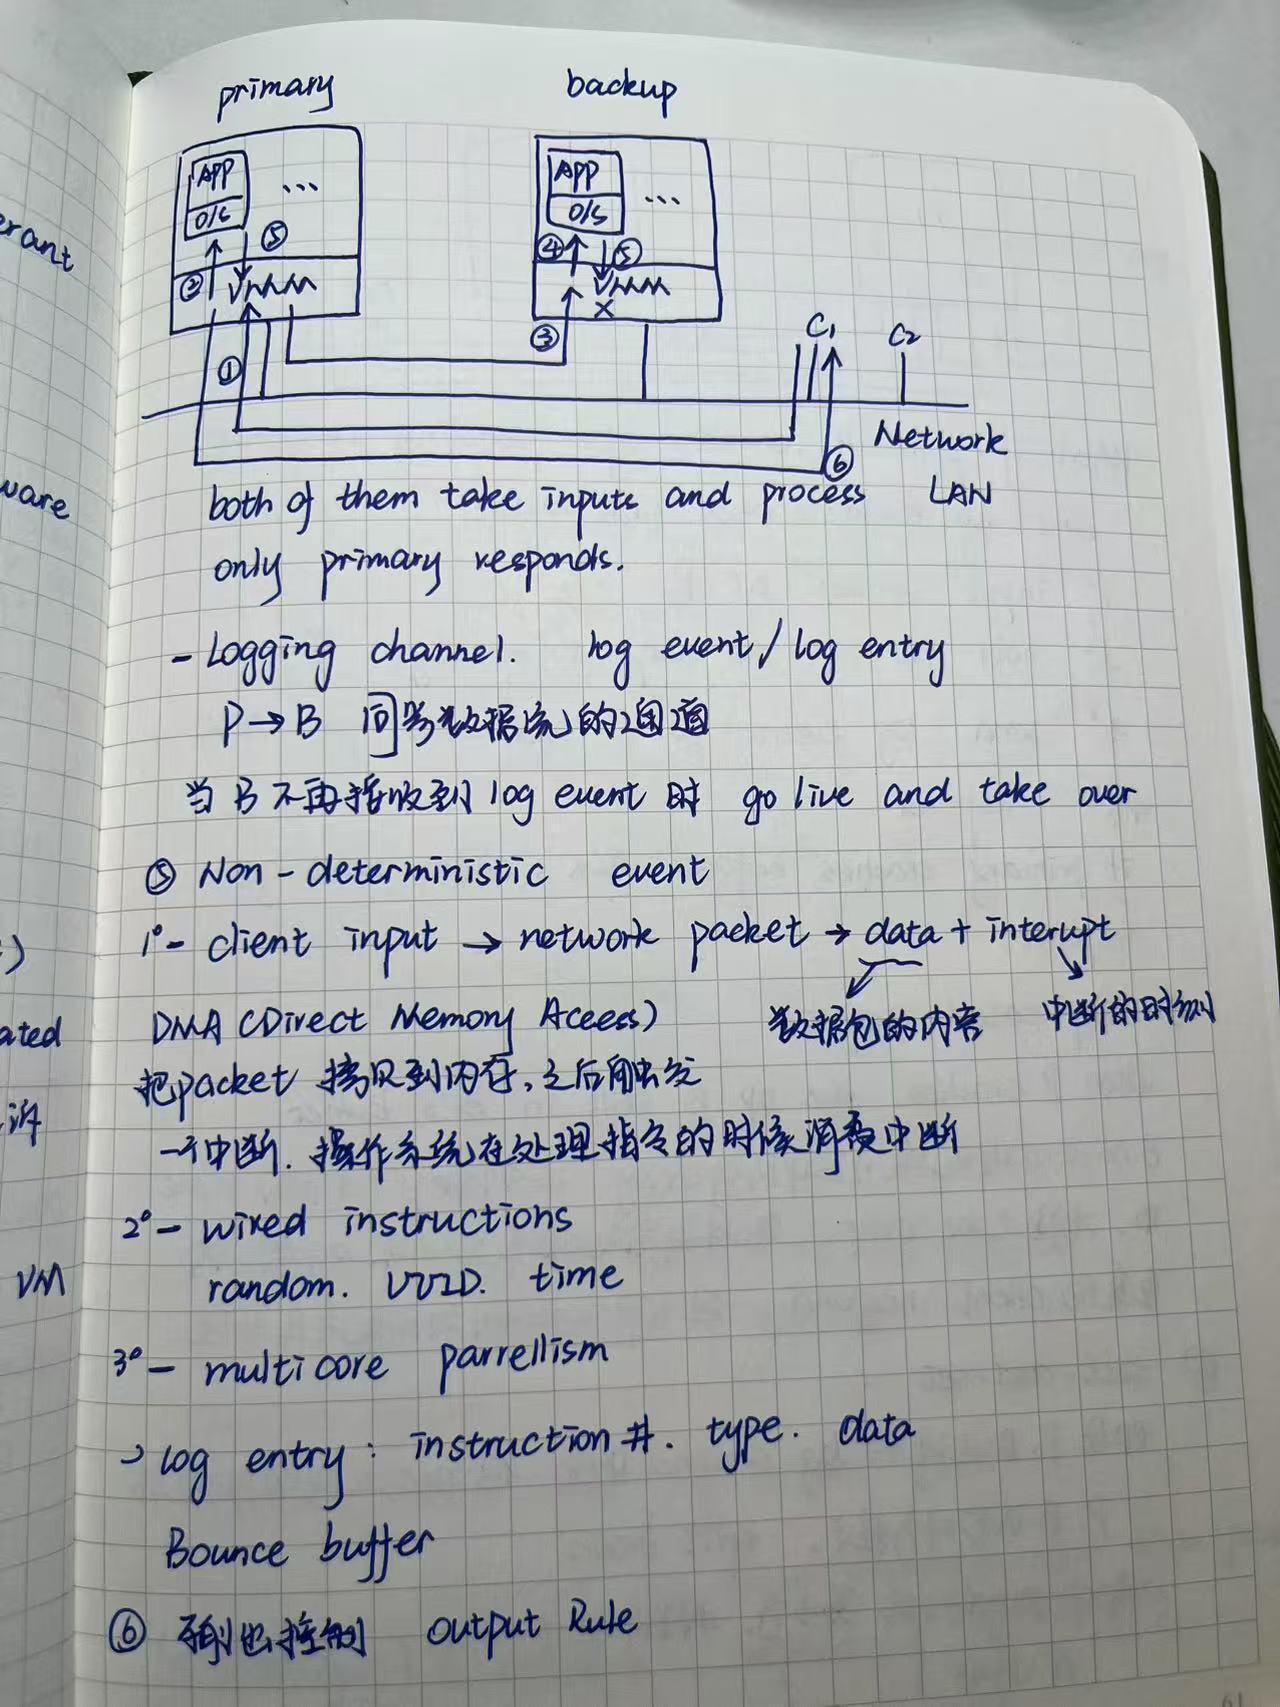 primary
backup
APP
...
O/S
⑤
②
VMM
①
APP
...
O/S
④
⑤
VMM
X
③
C1
C2
Network
⑥
both of them take inputs and process LAN
only primary responds.
- Logging channel. log event / log entry
P → B 同步数据流的通道
当 B 不再接收到 log event 时 go live and take over
⑤ Non-deterministic event
1° - client input → network packet → data + interupt
数据包的内容 中断的时刻
DMA (Direct Memory Aceess)
把packet 拷贝到内存,之后触发
一个中断. 操作系统在处理指令的时候消费中断
2° - wired instructions
random. UUID. time
3° - multi core parrellism
> log entry: instruction #. type. data
Bounce buffer
⑥ 输出控制 output Rule
erant
ware
)
ated
VM